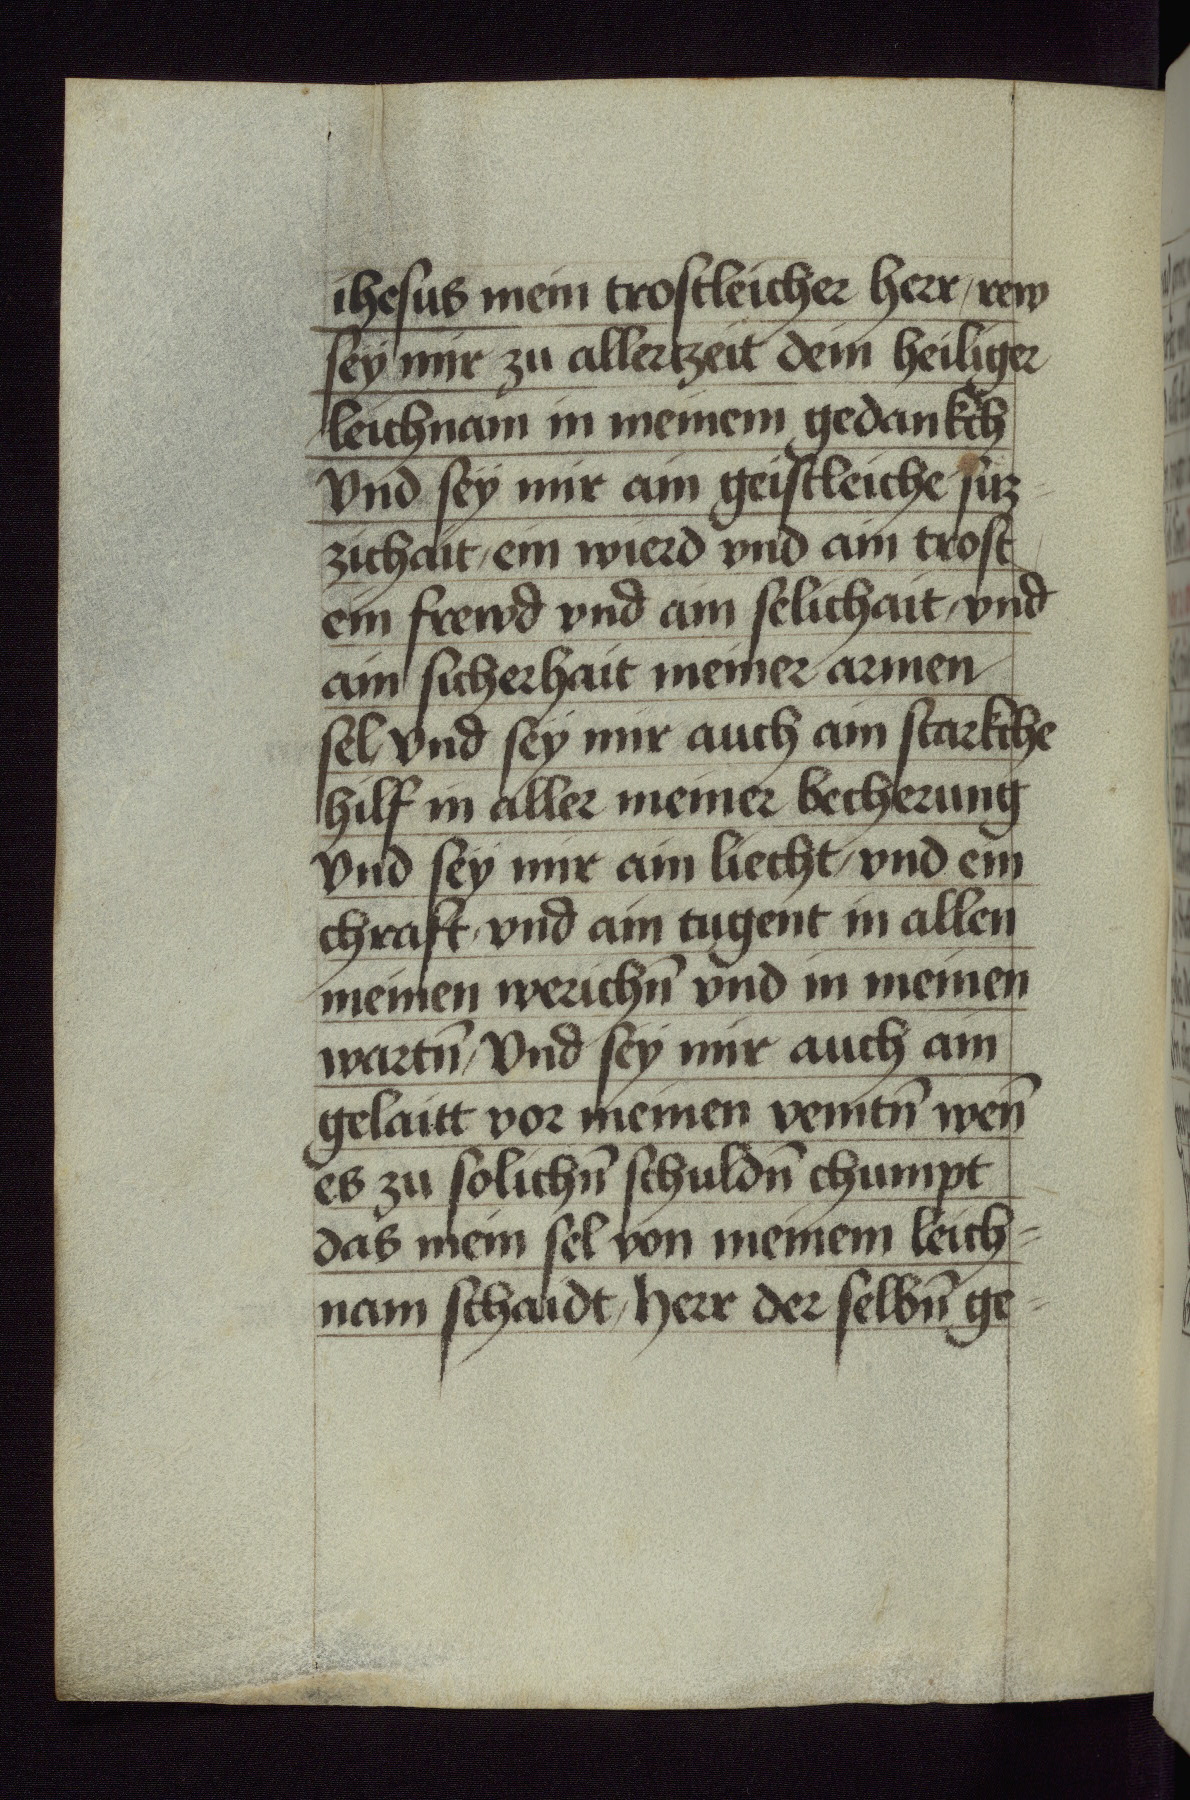 ihesus mein trostleicher herr / rew
sey mir zu allerczeit dein heiliger
leichnam in meinem gedankch
Vnd sey mir ain geistleiche süz-
zichait / ein wierd vnd ain trost
ein frewd vnd ain selichait / vnd
ain sicherhait meiner armen
sel / Vnd sey mir auch ain starkche
hilf in aller meiner becherung
Vnd sey mir ain liecht / vnd ein
chraft / vnd ain tugent in allen
meinen werichn̄ vnd in meinen
wartn̄ / Vnd sey mir auch ain
gelaitt vor meinen veintn̄ wen̄
es zu solichn̄ schuldn̄ chumpt
das mein sel von meinem leich-
nam schaidt / herr der selbn̄ ge-